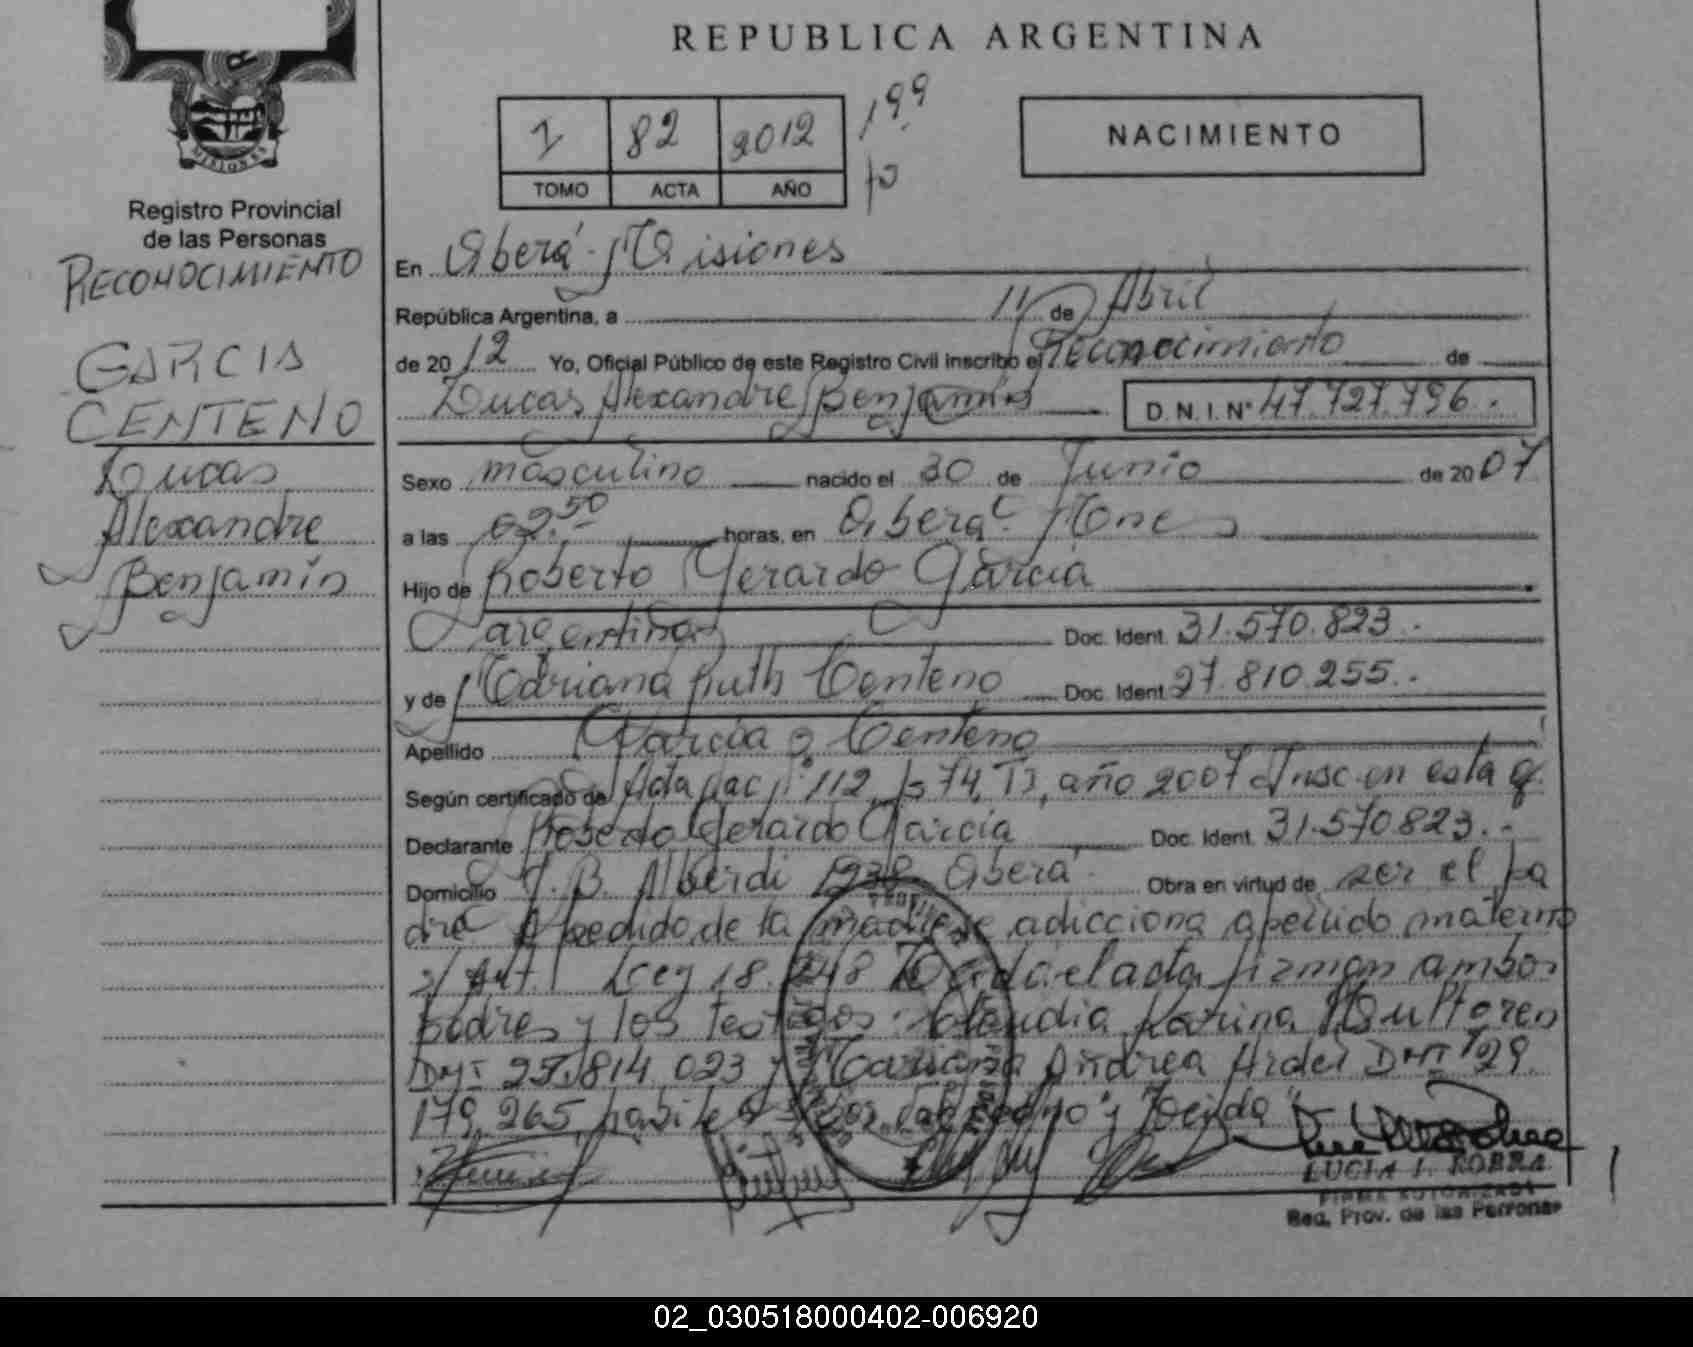 REPUBLICA ARGENTINA
MISIONES
Registro Provincial
de las Personas
RECONOCIMIENTO
GARCIA
CENTENO
Lucas
Alexandre
Benjamín
1 82 2012 199
TOMO ACTA AÑO
NACIMIENTO
En Oberá - Misiones
República Argentina, a 11 de Abril
de 2012 Yo, Oficial Público de este Registro Civil inscribo el Reconocimiento de
Lucas Alexandre Benjamín D.N.I. Nº 47.727.796.
Sexo masculino nacido el 30 de Junio de 2007
a las 02.50 horas, en Oberá Mnes
Hijo de Roberto Gerardo García
argentino Doc. Ident. 31.570.823.
y de Mariana Ruth Centeno Doc. Ident. 27.810.255.
Apellido García Centeno
Según certificado de Acta Nac Nº 112, Fº 74, T3, año 2007 Insc. en esta
Declarante Roberto Gerardo García Doc. Ident. 31.570823.
Domicilio J. B. Alberdi 1938 Oberá Obra en virtud de ser el pa
dre A pedido de la madre se adicciona apellido materno
s/ Art. 1 Ley 18.248 Leída el acta firman ambos
padres y los testigos: Claudia Karina
DNI 25.814.023 y Mariana Andrea DNI 29.
179.265
LUCIA I.
FIRMA AUTORIZADA
Reg. Prov. de las Personas
02_030518000402-006920